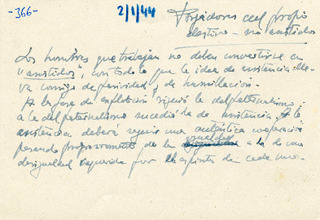 -366-
2/1/44
Forjadores del propio
destino - no asistidos
Los hombres que trabajan no deben convertirse en
"asistidos", con todo lo que la idea de asistencia lle-
va consigo de pasividad y de humillación.
A la fase de explotación siguió la del paternalismo
a la del paternalismo sucedió la de asistencia. A la
asistencia deberá seguir una auténtica cooperación
pasando progresivamente de la igualdad a la de una
desigualdad requerida por el aporte de cada uno.